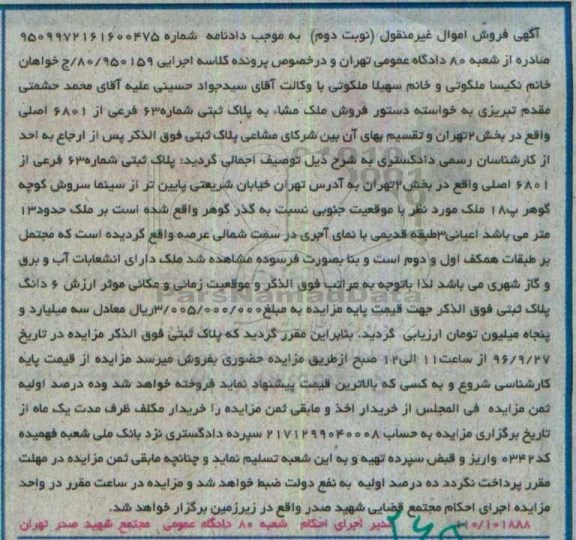 آگهی فروش اموال غیرمنقول (نوبت دوم) به موجب دادنامه شماره ۹۵۰۹۹۷۲۱۶۱۶۰۰۴۷۵
صادره از شعبه ۸۰ دادگاه عمومی تهران و درخصوص پرونده کلاسه اجرایی ۸۰/۹۵۰۱۵۹/ج خواهان
خانم نکیسا ملکوتی و خانم سهیلا ملکوتی با وکالت آقای سیدجواد حسینی علیه آقای محمد حشمتی
مقدم تبریزی به خواسته دستور فروش ملک مشاء به پلاک ثبتی شماره۶۳ فرعی از ۶۸۰۱ اصلی
واقع در بخش۲تهران و تقسیم بهای آن بین شرکای مشاعی پلاک ثبتی فوق الذکر پس از ارجاع به احد
از کارشناسان رسمی دادگستری به شرح ذیل توصیف اجمالی گردید: پلاک ثبتی شماره۶۳ فرعی از
۶۸۰۱ اصلی واقع در بخش۲تهران به آدرس تهران خیابان شریعتی پایین تر از سینما سروش کوچه
گوهر پ۱۸ ملک مورد نظر با موقعیت جنوبی نسبت به گذر گوهر واقع شده است بر ملک حدود۱۳
متر می باشد اعیانی۳طبقه قدیمی با نمای آجری در سمت شمالی عرصه واقع گردیده است که مجتمل
بر طبقات همکف اول و دوم است و بنا بصورت فرسوده مشاهده شد ملک دارای انشعابات آب و برق
و گاز شهری می باشد لذا باتوجه به مراتب فوق الذکر و موقعیت زمانی و مکانی موثر ارزش ۶ دانگ
پلاک ثبتی فوق الذکر جهت قیمت پایه مزایده به مبلغ۳/۰۰۵/۰۰۰/۰۰۰ریال معادل سه میلیارد و
پنجاه میلیون تومان ارزیابی گردید. بنابراین مقرر گردید که پلاک ثبتی فوق الذکر مزایده در تاریخ
۹۶/۹/۲۷ از ساعت۱۱ الی۱۲ صبح ازطریق مزایده حضوری بفروش میرسد مزایده از قیمت پایه
کارشناسی شروع و به کسی که بالاترین قیمت پیشنهاد نماید فروخته خواهد شد وده درصد اولیه
ثمن مزایده فی المجلس از خریدار اخذ و مابقی ثمن مزایده را خریدار مکلف ظرف مدت یک ماه از
تاریخ برگزاری مزایده به حساب ۲۱۷۱۲۹۹۰۴۰۰۰۸ سپرده دادگستری نزد بانک ملی شعبه فهمیده
کد۰۳۴۲ واریز و قبض سپرده تهیه و به این شعبه تسلیم نماید و چنانچه مابقی ثمن مزایده در مهلت
مقرر پرداخت نگردد ده درصد اولیه به نفع دولت ضبط خواهد شد و مزایده در ساعت مقرر در واحد
مزایده اجرای احکام مجتمع قضایی شهید صدر واقع در زیرزمین برگزار خواهد شد.
۱۱۰/۱۰۱۸۸۸ مدیر اجرای احکام شعبه ۸۰ دادگاه عمومی مجتمع شهید صدر تهران
ParsNamadData